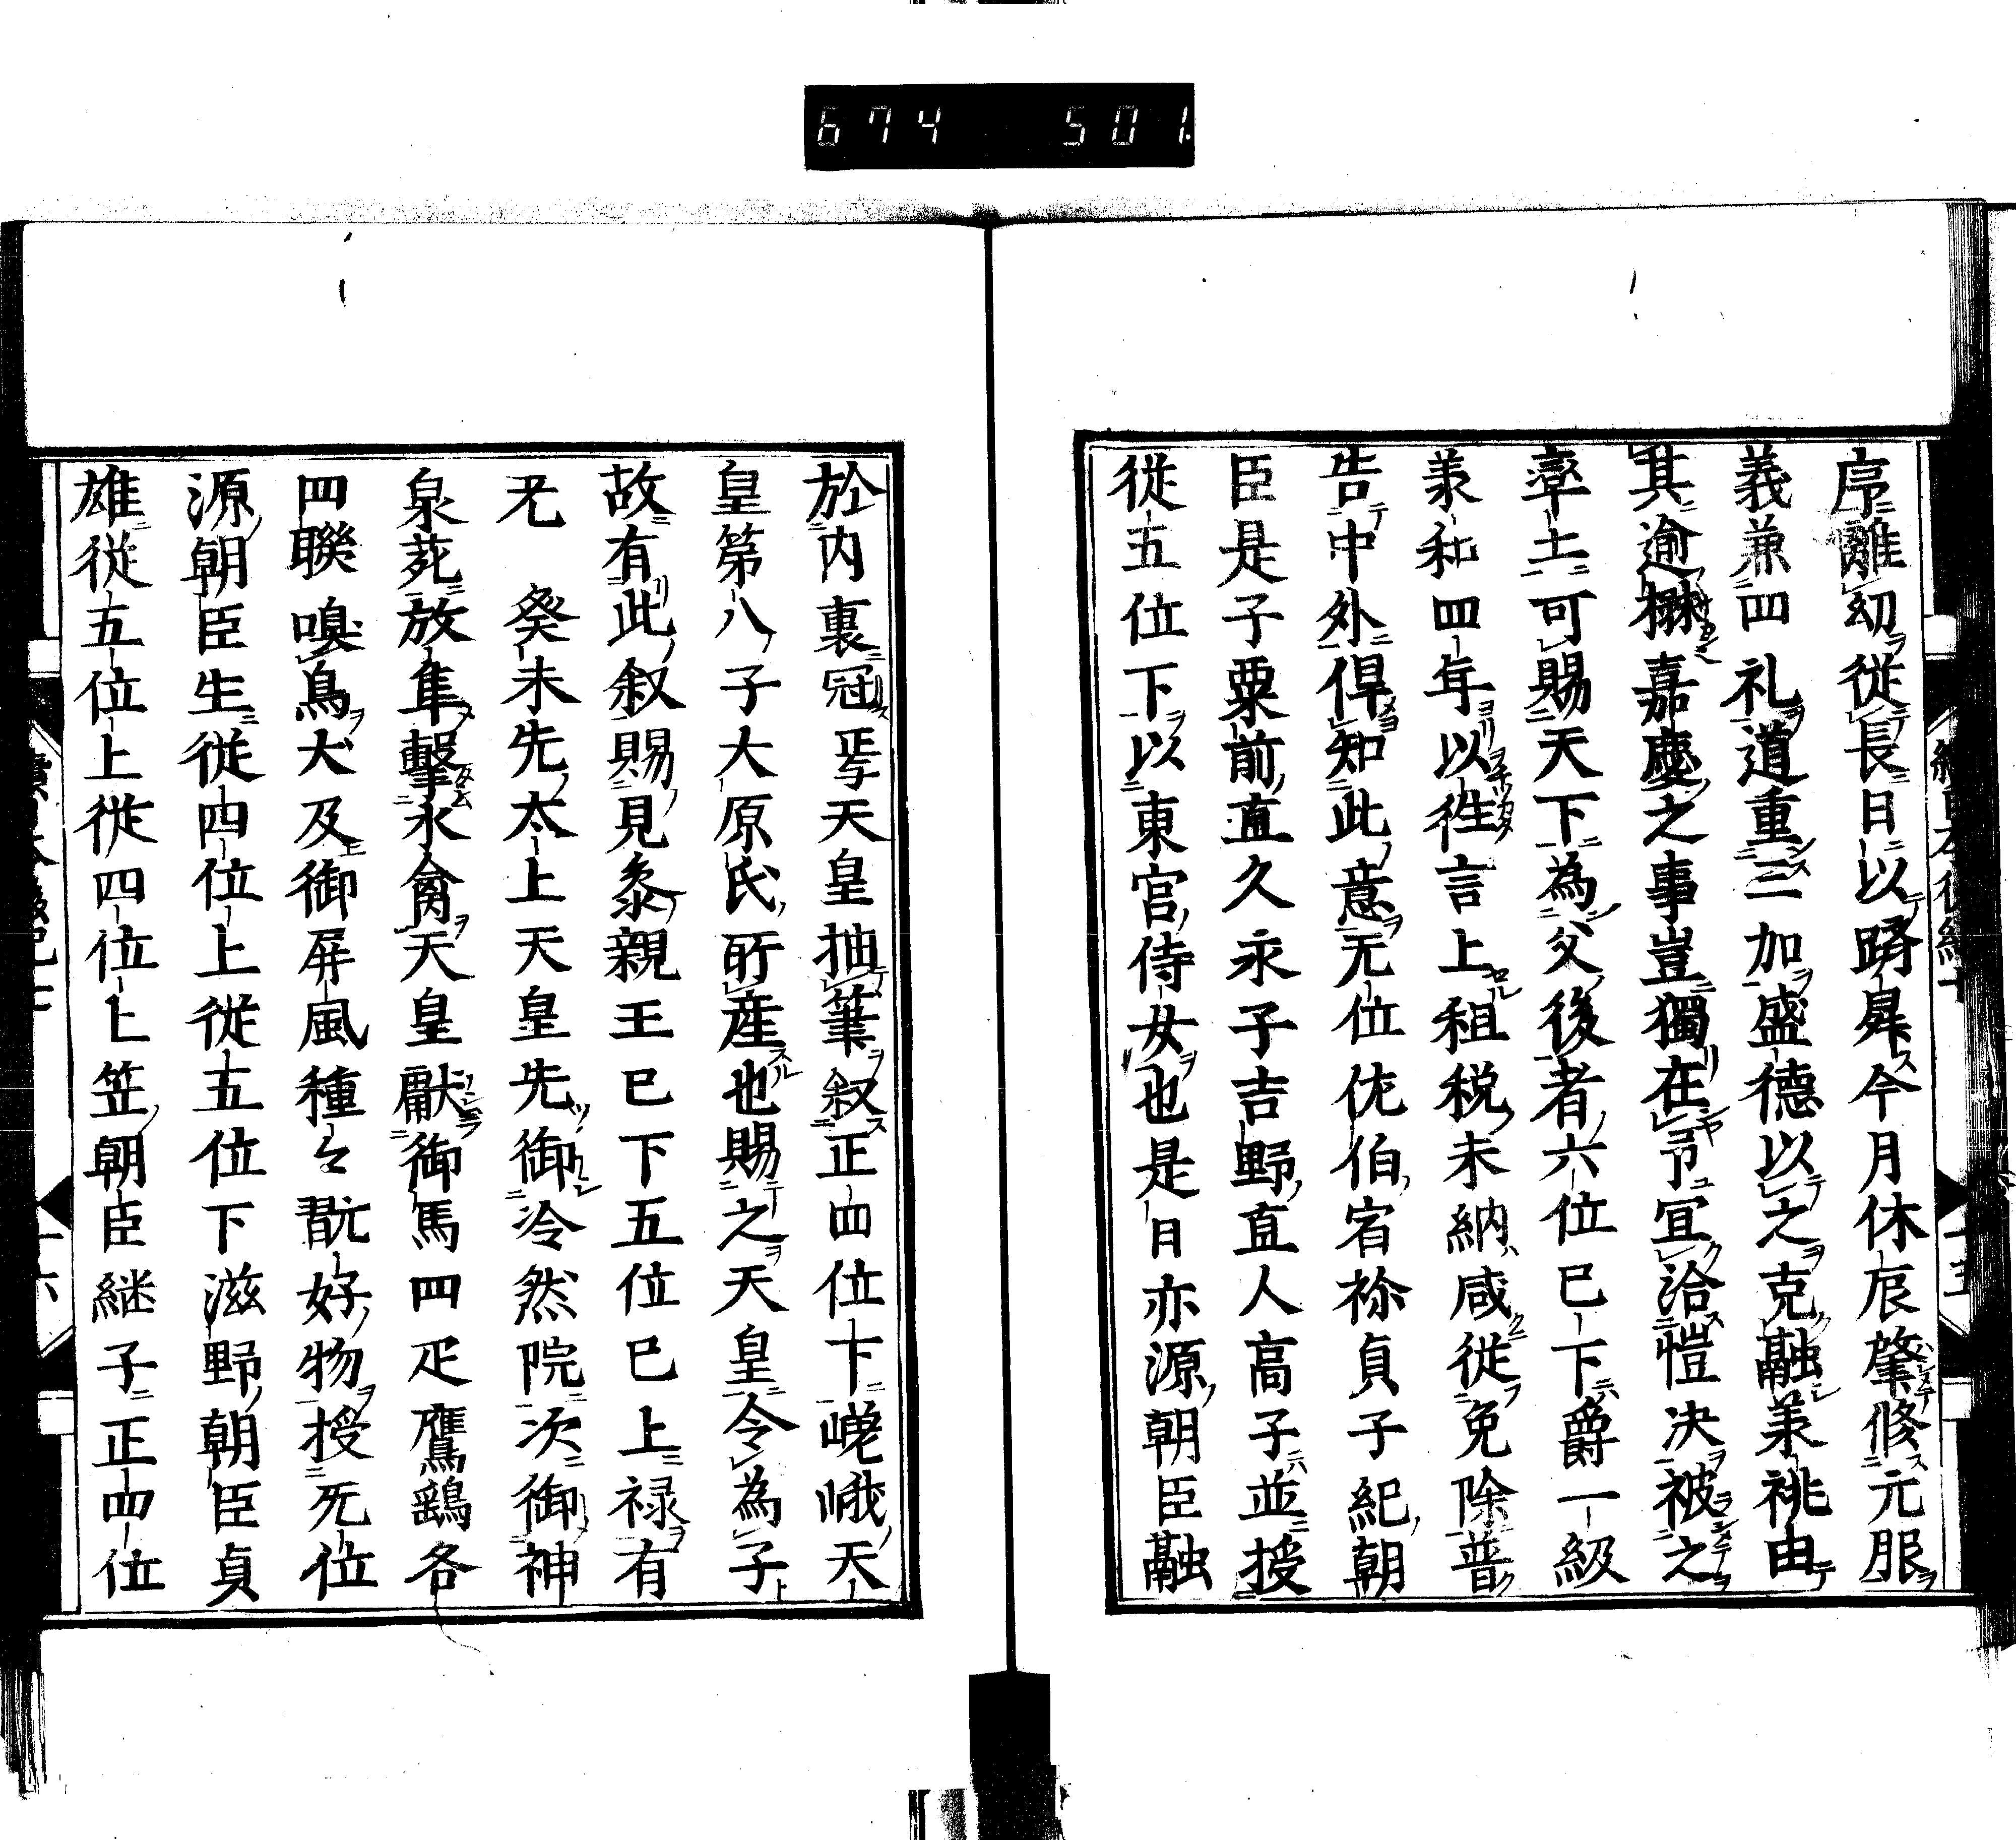 674 501
序離幼從長日以躋昇今月休辰肇修元服
義兼四礼道重三加盛德以之克融兼祧由
其逾楙嘉慶之事豈獨在予宜洽愷決被之
率土可賜天下為父後者六位已下爵一級
承和四年以徃言上租税未納咸從免除普
告中外俾知此意无位佐伯宿祢貞子紀朝
臣是子粟前直久永子吉野直人高子並授
從五位下以東宮侍女也是日亦源朝臣融
於内裏冠焉天皇抽筆叙正四位下嵯峨天
皇第八子大原氏所産也賜之天皇令為子
故有此叙賜見参親王已下五位已上禄有
差 癸未先太上天皇先御冷然院次御神
泉苑放隼擊水禽天皇獻御馬四疋鷹鷂各
四聯嗅鳥犬及御屏風種々翫好物授无位
源朝臣生從四位上從五位下滋野朝臣貞
雄從五位上從四位上笠朝臣継子正四位